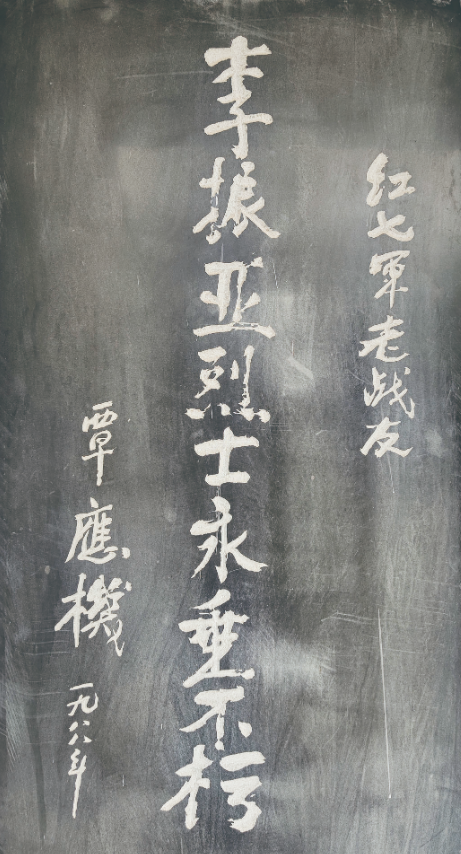 红七军老战友
李振亚烈士永垂不朽
覃應機
一九八八年